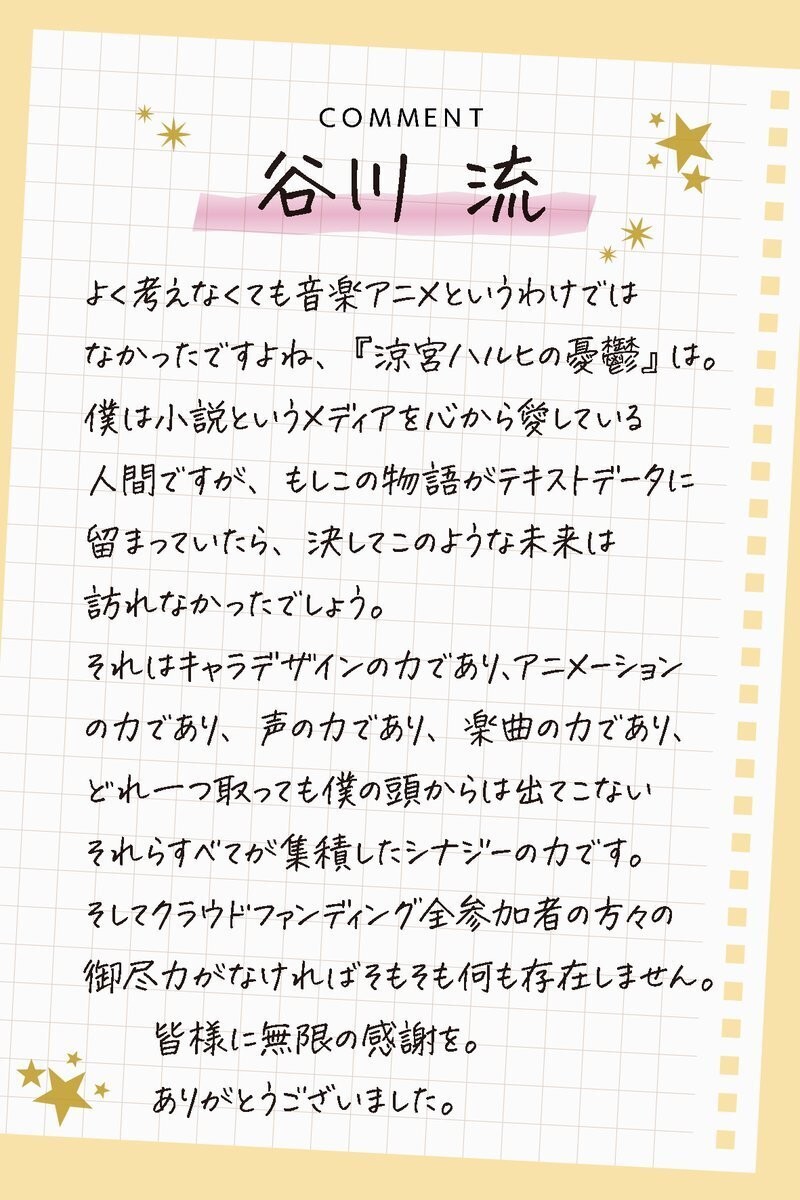 COMMENT
谷川 流
よく考えなくても音楽アニメというわけでは
なかったですよね、『涼宮ハルヒの憂鬱』は。
僕は小説というメディアを心から愛している
人間ですが、もしこの物語がテキストデータに
留まっていたら、決してこのような未来は
訪れなかったでしょう。
それはキャラデザインの力であり、アニメーション
の力であり、声の力であり、楽曲の力であり、
どれ一つ取っても僕の頭からは出てこない
それらすべてが集積したシナジーの力です。
そしてクラウドファンディング全参加者の方々の
御尽力がなければそもそも何も存在しません。
皆様に無限の感謝を。
ありがとうございました。